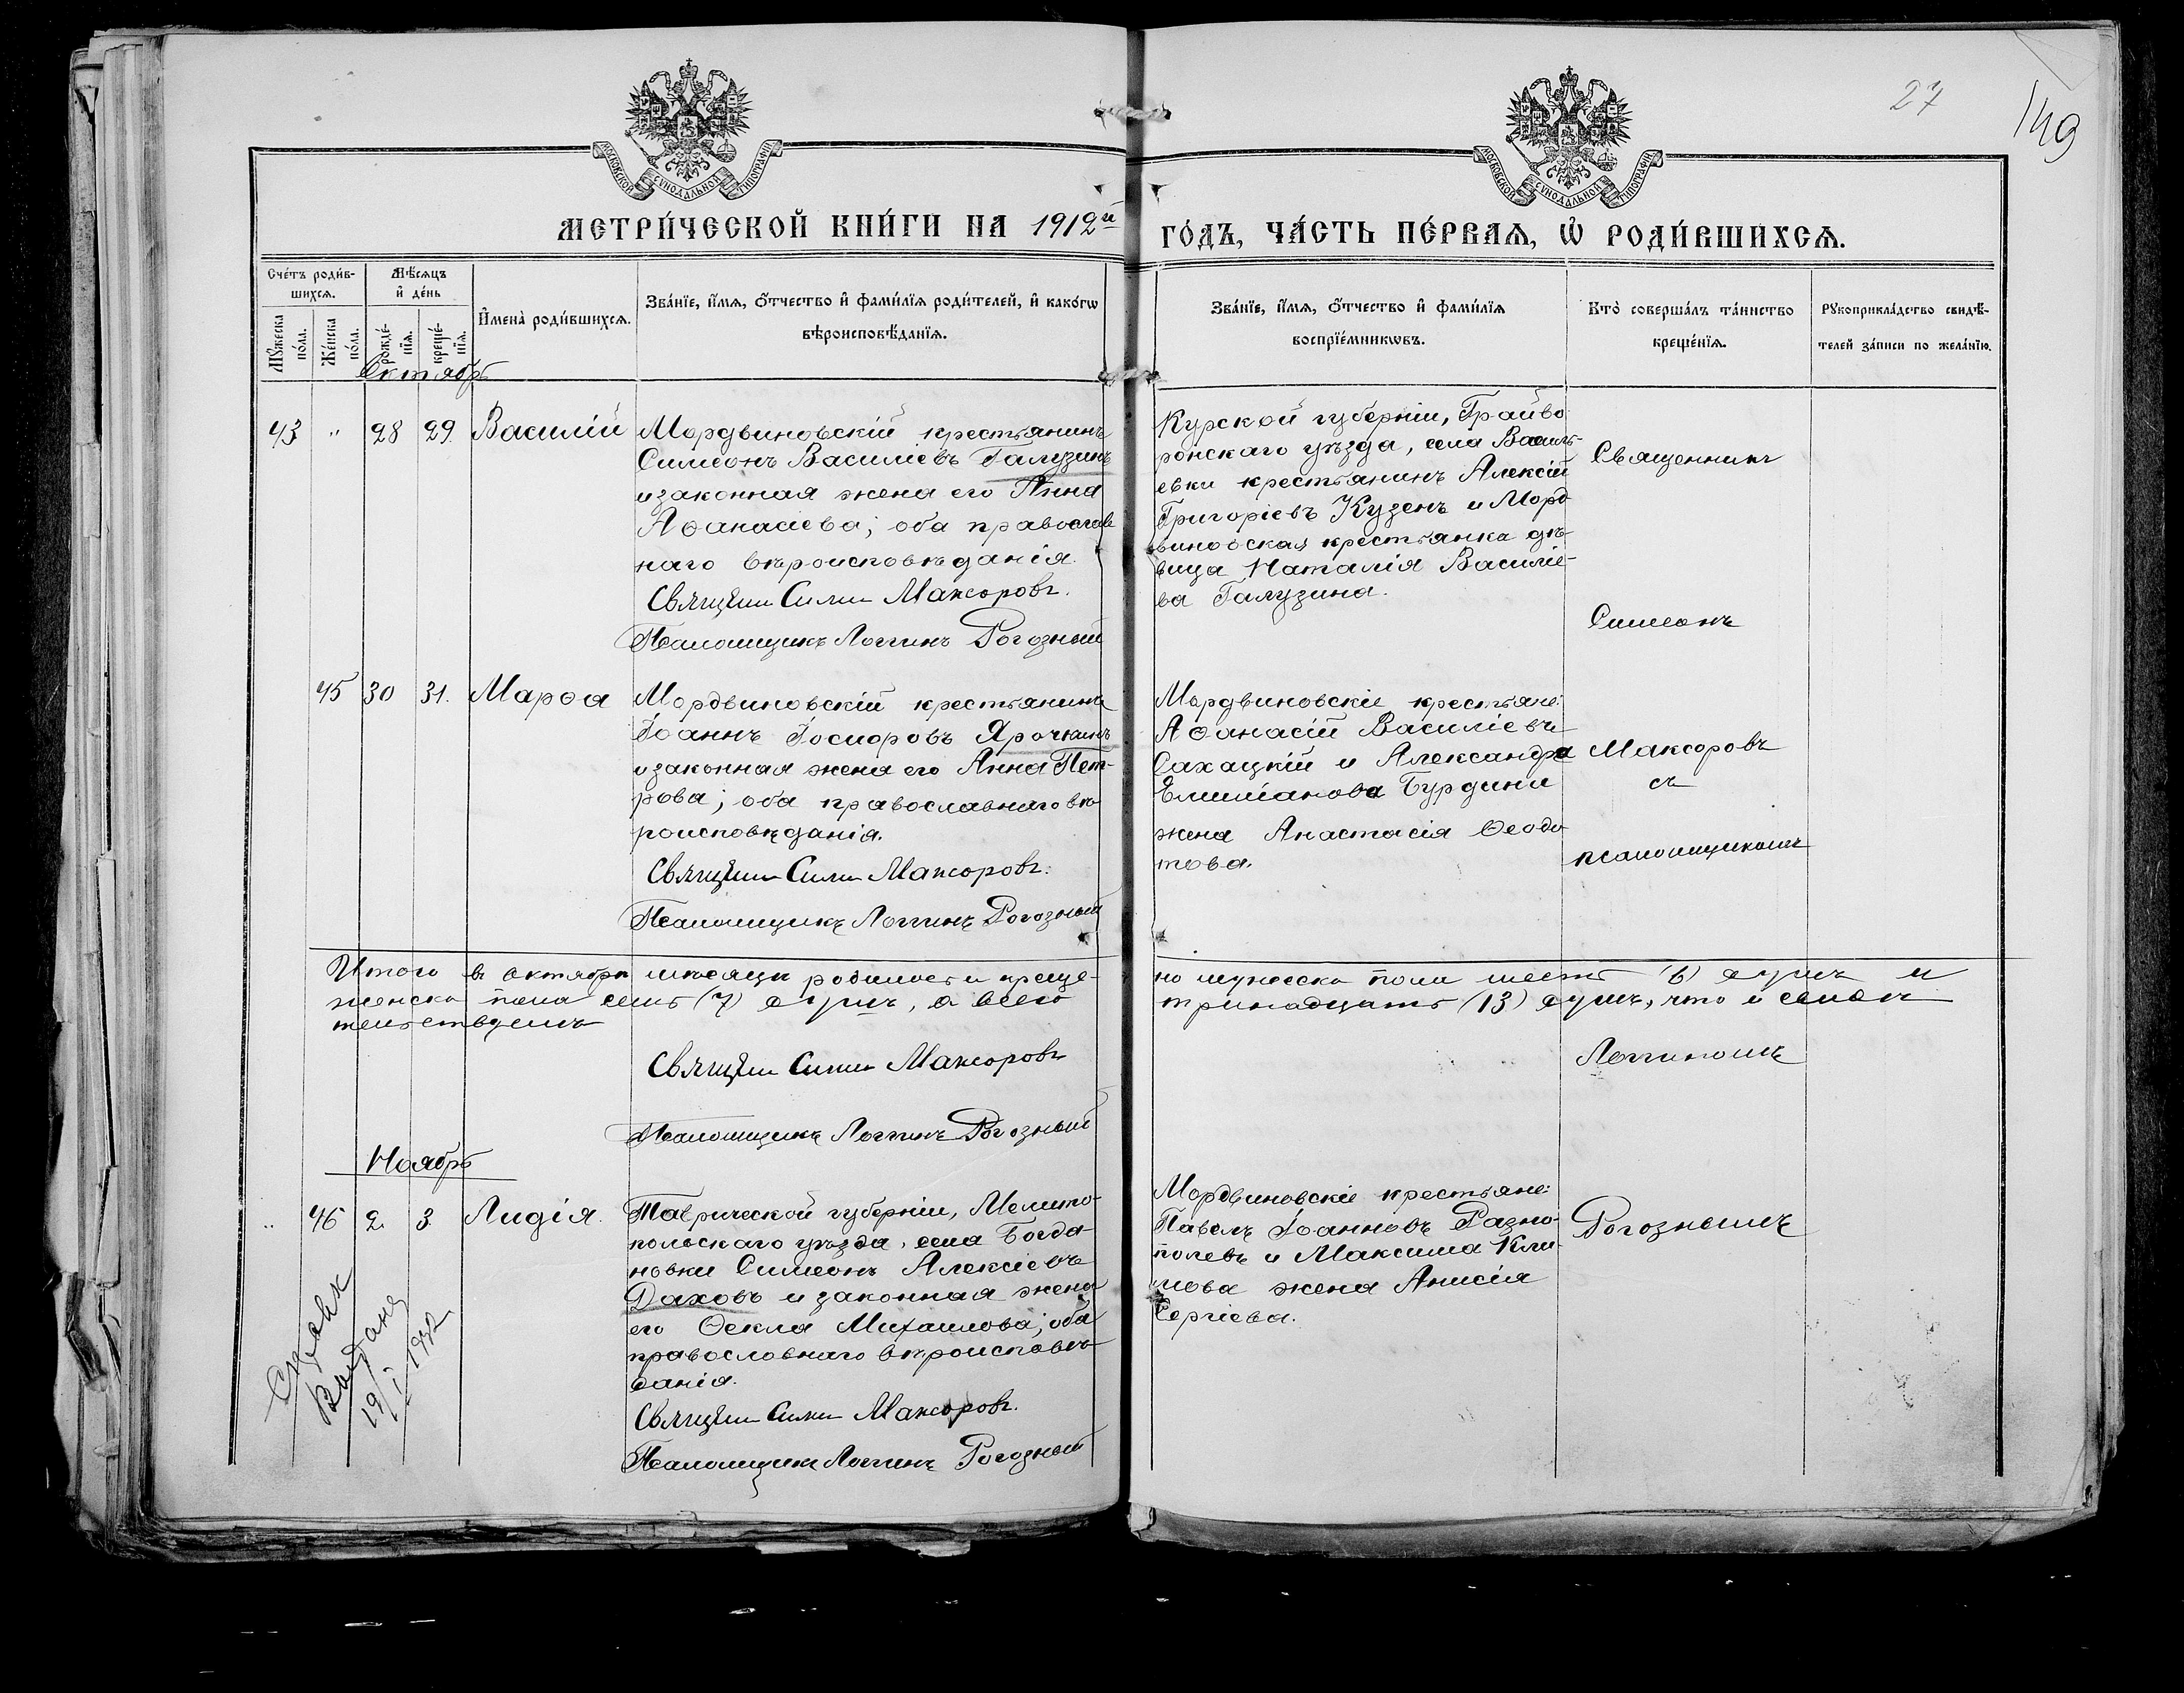 27
149
МОСКОВСКОЙ СѴНОДАЛЬНОЙ ТИПОГРАФІИ
МОСКОВСКОЙ СѴНОДАЛЬНОЙ ТИПОГРАФІИ
МЕТРИ́ЧЕСКОЙ КНИ́ГИ НА 1912й ГО́ДЪ, ЧА́СТЬ ПЕ́РВАѦ, Ѡ҆ РОДИ́ВШИХСѦ.
Сче́тъ роди́вшихсѧ.
Мѣ́сѧцъ и҆ де́нь
И҆мена̀ роди́вшихсѧ.
Зва́нїе, и҆́мѧ, ѻ҆́тчество и҆ фами́лїѧ роди́телей, и҆ како́гѡ
вѣроисповѣ́данїѧ.
Зва́нїе, и҆́мѧ, ѻ҆́тчество и҆ фами́лїѧ
воспрїе́мникѡвъ.
Кто̀ соверша́лъ та́инство
креще́нїѧ.
Рꙋкоприкла́дство свидѣ́-
телей за́писи по жела́нїю.
Мꙋ́жеска по́ла.
Же́нска по́ла.
рожде́нїѧ.
креще́нїѧ.
Октябрь
43 " 28 29. Василій
Мордвиновскій крестьянинъ
Симеонъ Василіевъ Галузинъ
и законная жена его Анна
Аѳанасіева; оба православ
наго вѣроисповѣданія.
Священ Симе Максоровъ.
Псаломщикъ Логгинъ Рогозный
Курской губерніи, Грайво
ронскаго уѣзда, села Василь-
евки крестьянинъ Алексій
Григоріевъ Кузенъ и Морд
виновская крестьянка дѣ-
вица Наталія Василіе-
ва Галузина.
Священникъ
Симеонъ
45 30 31. Марѳа
Мордвиновскій крестьянинъ
Іоаннъ Іосифовъ Ярочкинъ
и законная жена его Анна Пет-
рова; оба православнаго вѣ
роисповѣданія.
Священ Симе Максоровъ.
Псаломщикъ Логгинъ Рогозный
Мордвиновскіе крестьяне:
Аѳанасій Василіевъ
Сахацкій и Александра
Емиліанова Бурдини
жена Анастасія Ѳеодо
това.
Максоровъ
съ
псаломщикомъ
Итого въ октябрѣ мѣсяцѣ родилось и креще- но мужеска пола шесть (6) душъ и
женска пола семь (7) душъ, а всего тринадцать (13) душъ, что и симъ
свидѣтельствуемъ
Священ Симе Максоровъ
Псаломщикъ Логгинъ Рогозный
Логгиномъ
Ноябрь
" 46 2. 3. Лидія.
Таврической губерніи, Мелито-
польскаго уѣзда, села Богда
новки Симеонъ Алексіевъ
Даховъ и законная жена
его Ѳекла Михаилова; оба
православнаго вѣроисповѣ-
данія.
Священ Симе Максоровъ.
Псаломщикъ Логгинъ Рогозный
Мордвиновскіе крестьяне:
Павелъ Іоанновъ Разно-
полевъ и Максима Кли-
мова жена Анисія
Сергіева.
Рогознымъ
Видано
19/I 1932